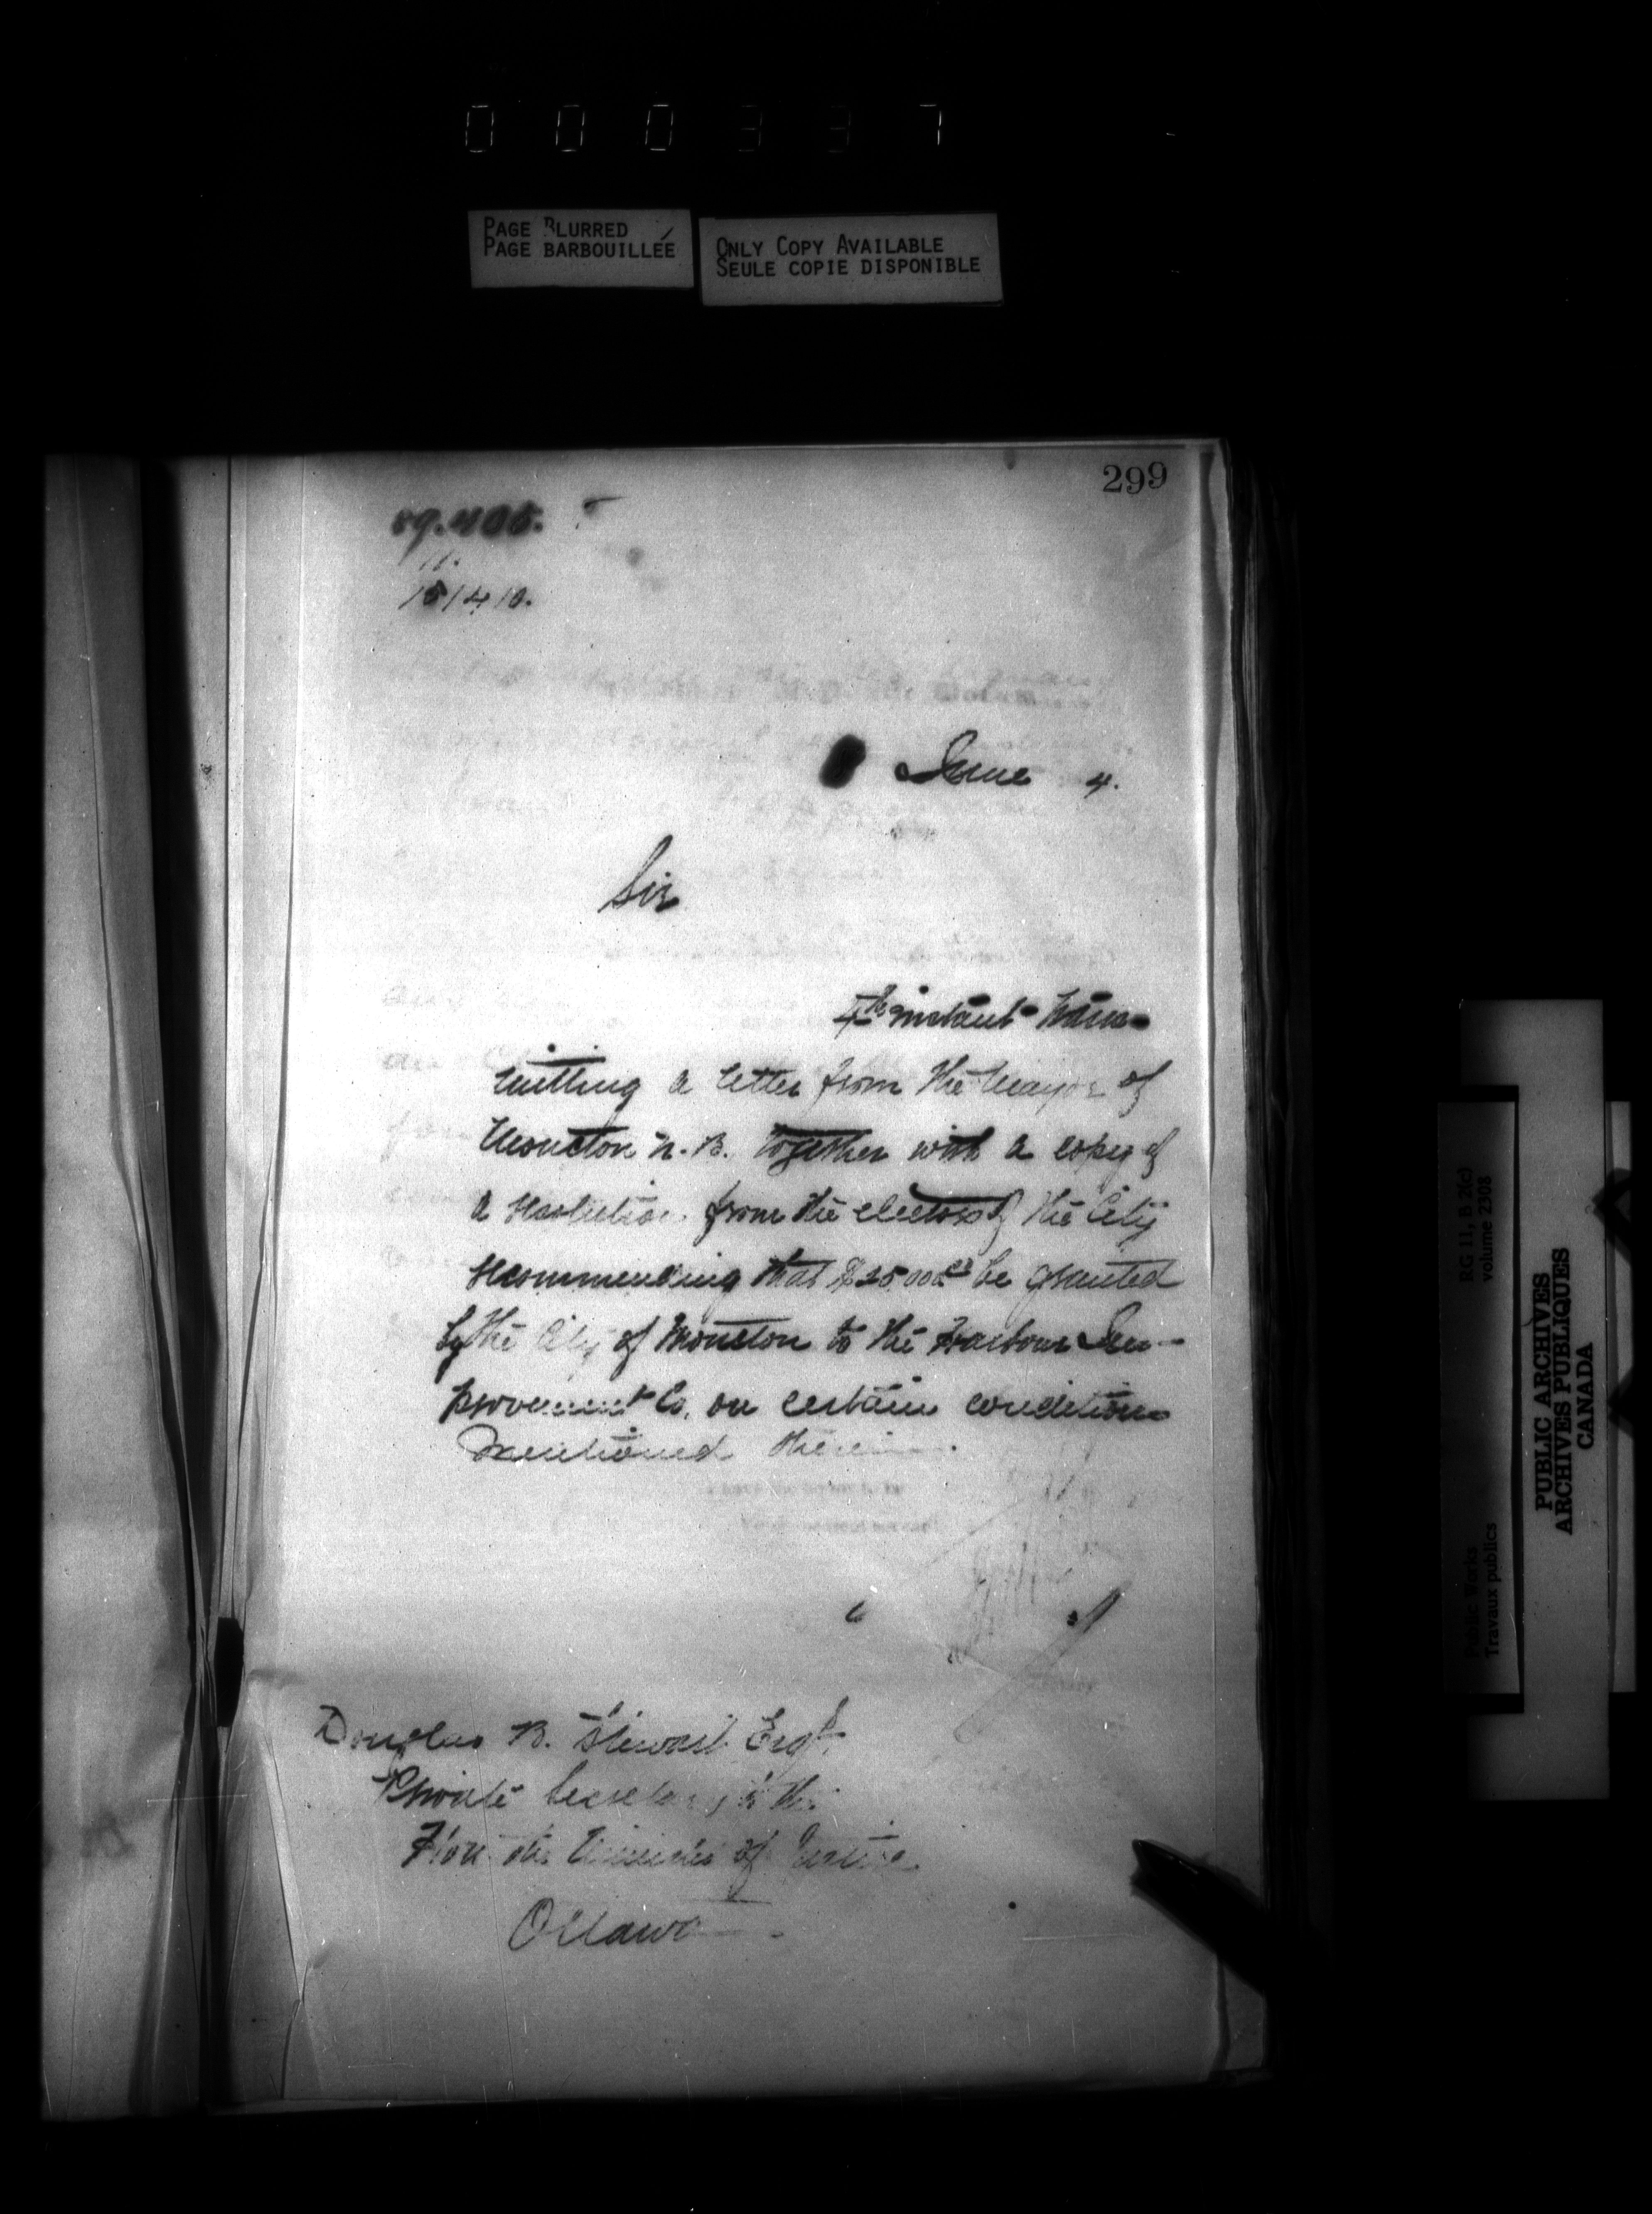 000337
PAGE BLURRED
PAGE BARBOUILLÉE
ONLY COPY AVAILABLE
SEULE COPIE DISPONIBLE
299
89.405.
15/4/10.
June 4.
Sir
4th instant trans-
mitting a letter from the Mayor of
Moncton N.B. together with a copy of
a resolution from the electors of the City
recommending that $25.000.00 be granted
by the City of Moncton to the Harbour Im-
provement Co. on certain conditions
mentioned therein.
Douglas B. Stewart Esqr.
Private Secretary to the
Hon. the Minister of Justice
Ottawa
RG 11, B 2(c)
volume 2308
Public Works
Travaux publics
PUBLIC ARCHIVES
ARCHIVES PUBLIQUES
CANADA